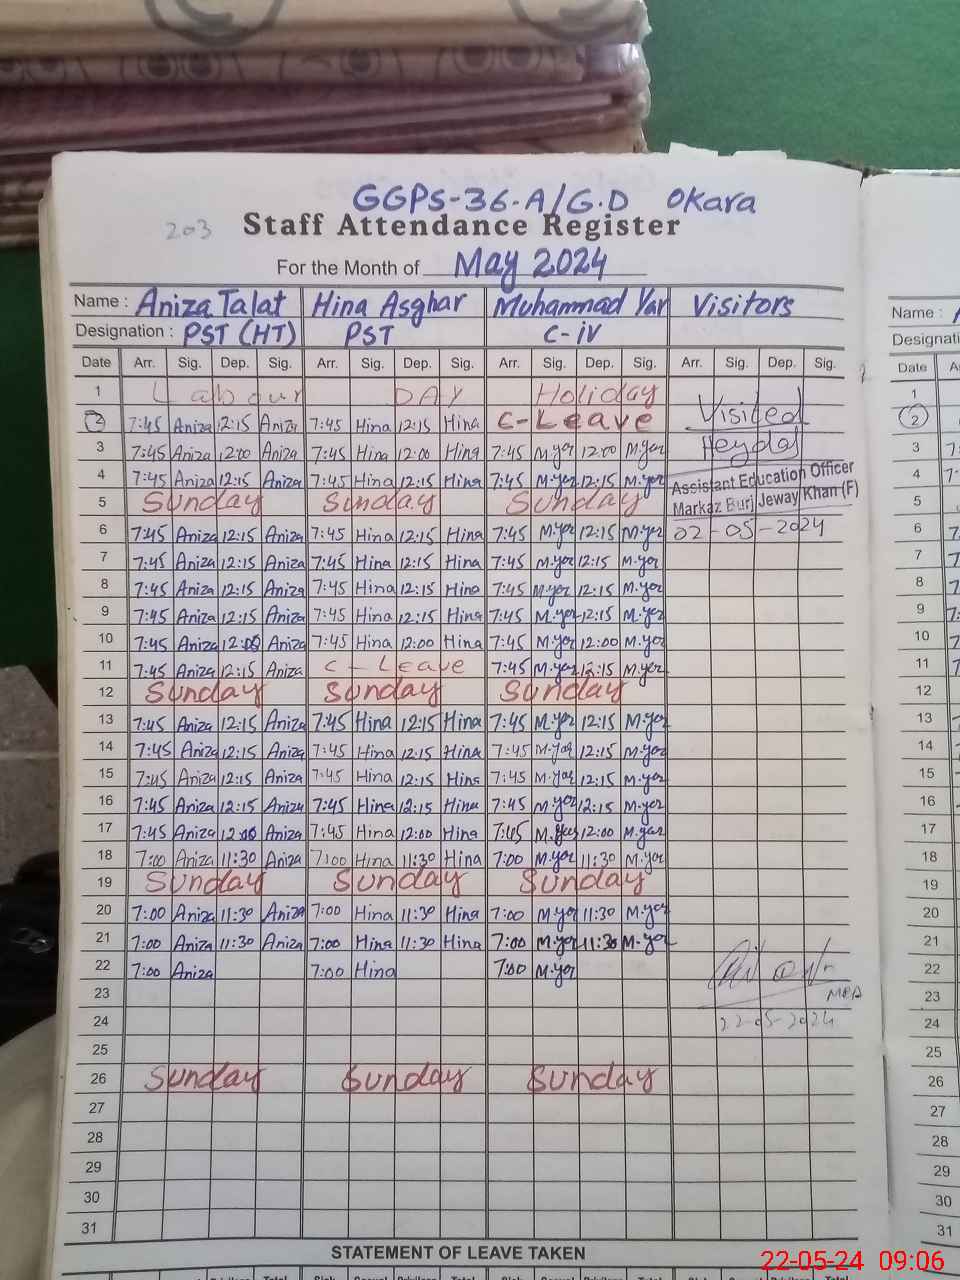 GGPS-36-A/G.D Okara
203 Staff Attendance Register
For the Month of May 2024
Name : Aniza Talat Hina Asghar Muhammad Yar Visitors
Designation : PST (HT) PST C-iv
Date Arr. Sig. Dep. Sig. Arr. Sig. Dep. Sig. Arr. Sig. Dep. Sig. Arr. Sig. Dep. Sig.
1 Labour DAY Holiday
2 7:45 Aniza 12:15 Aniza 7:45 Hina 12:15 Hina C-Leave Visited
3 7:45 Aniza 12:00 Aniza 7:45 Hina 12:00 Hina 7:45 M.yar 12:00 M.yar
4 7:45 Aniza 12:15 Aniza 7:45 Hina 12:15 Hina 7:45 M.yar 12:15 M.yar Assistant Education Officer
5 Sunday Sunday Sunday Markaz Burj Jeway Khan (F)
6 7:45 Aniza 12:15 Aniza 7:45 Hina 12:15 Hina 7:45 M.yar 12:15 M.yar 02-05-2024
7 7:45 Aniza 12:15 Aniza 7:45 Hina 12:15 Hina 7:45 M.yar 12:15 M.yar
8 7:45 Aniza 12:15 Aniza 7:45 Hina 12:15 Hina 7:45 M.yar 12:15 M.yar
9 7:45 Aniza 12:15 Aniza 7:45 Hina 12:15 Hina 7:45 M.yar 12:15 M.yar
10 7:45 Aniza 12:00 Aniza 7:45 Hina 12:00 Hina 7:45 M.yar 12:00 M.yar
11 7:45 Aniza 12:15 Aniza C-Leave 7:45 M.yar 12:15 M.yar
12 Sunday Sunday Sunday
13 7:45 Aniza 12:15 Aniza 7:45 Hina 12:15 Hina 7:45 M.yar 12:15 M.yar
14 7:45 Aniza 12:15 Aniza 7:45 Hina 12:15 Hina 7:45 M.yar 12:15 M.yar
15 7:45 Aniza 12:15 Aniza 7:45 Hina 12:15 Hina 7:45 M.yar 12:15 M.yar
16 7:45 Aniza 12:15 Aniza 7:45 Hina 12:15 Hina 7:45 M.yar 12:15 M.yar
17 7:45 Aniza 12:00 Aniza 7:45 Hina 12:00 Hina 7:45 M.yar 12:00 M.yar
18 7:00 Aniza 11:30 Aniza 7:00 Hina 11:30 Hina 7:00 M.yar 11:30 M.yar
19 Sunday Sunday Sunday
20 7:00 Aniza 11:30 Aniza 7:00 Hina 11:30 Hina 7:00 M.yar 11:30 M.yar
21 7:00 Aniza 11:30 Aniza 7:00 Hina 11:30 Hina 7:00 M.yar 11:30 M.yar
22 7:00 Aniza 7:00 Hina 7:00 M.yar
23 MEA
24 22-05-2024
25
26 Sunday Sunday Sunday
27
28
29
30
31
STATEMENT OF LEAVE TAKEN
Name :
Date
1
2
3
4
5
6
7
8
9
10
11
12
13
14
15
16
17
18
19
20
21
22
23
24
25
26
27
28
29
30
31
22-05-24 09:06